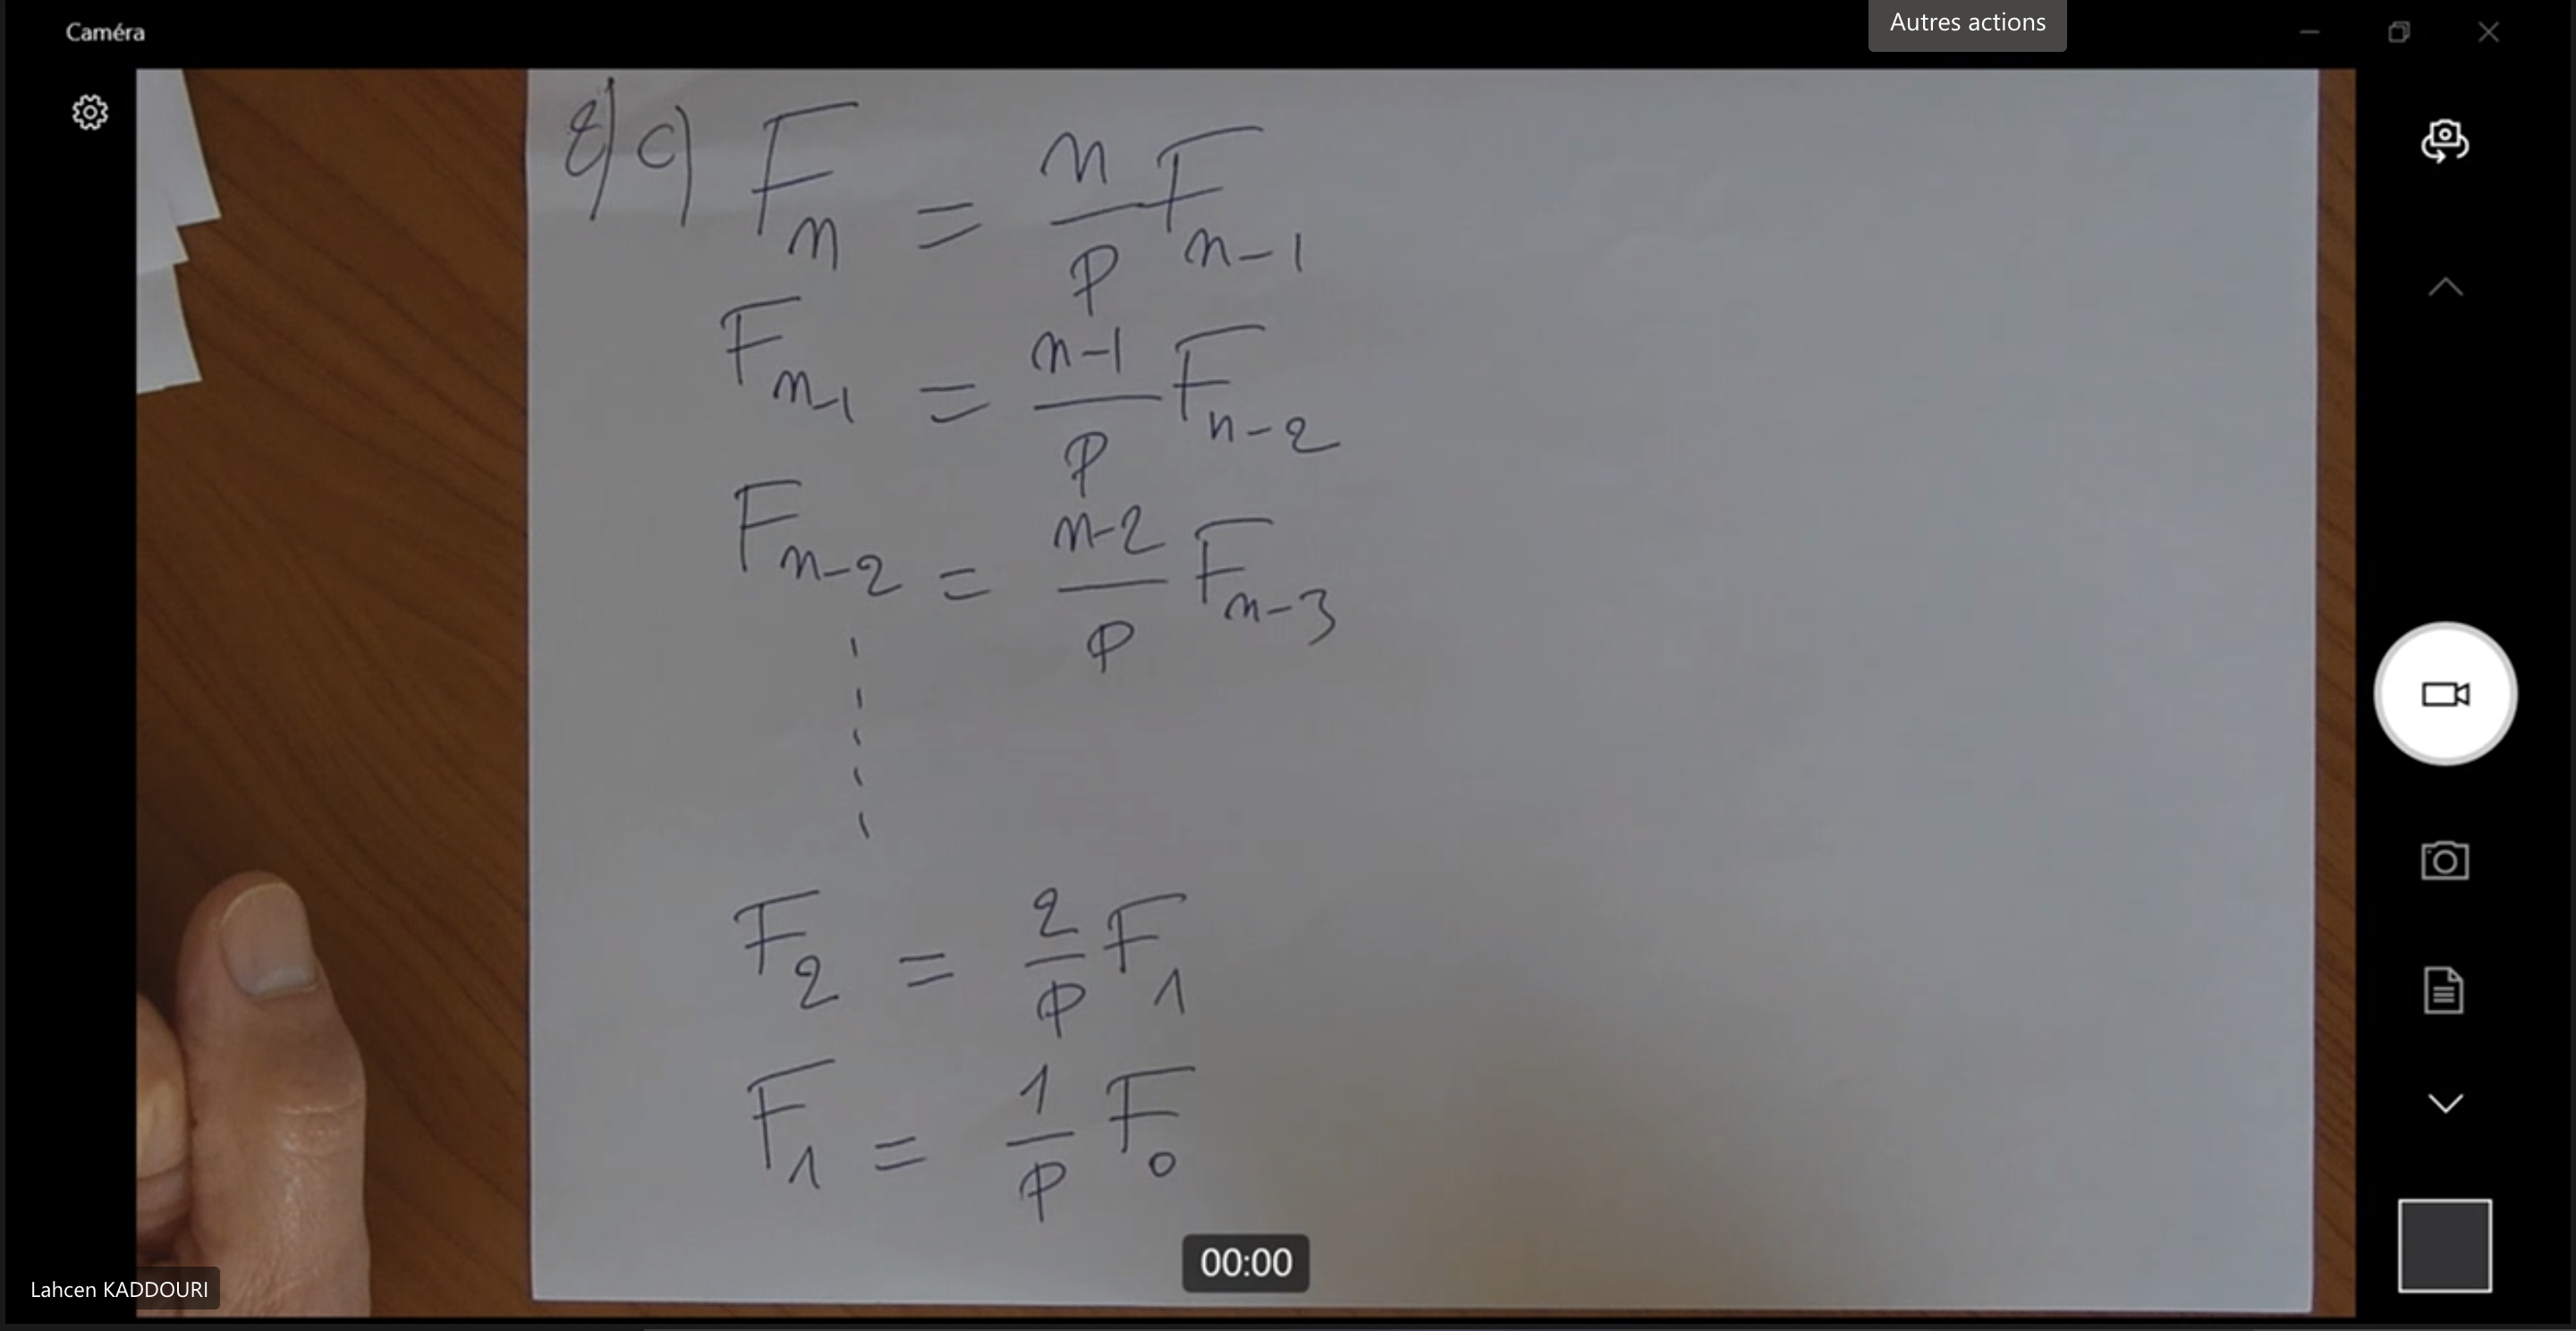 Caméra
Autres actions
2) c) Fn = n/p Fn-1
Fn-1 = n-1/p Fn-2
Fn-2 = n-2/p Fn-3
F2 = 2/p F1
F1 = 1/p F0
00:00
Lahcen KADDOURI